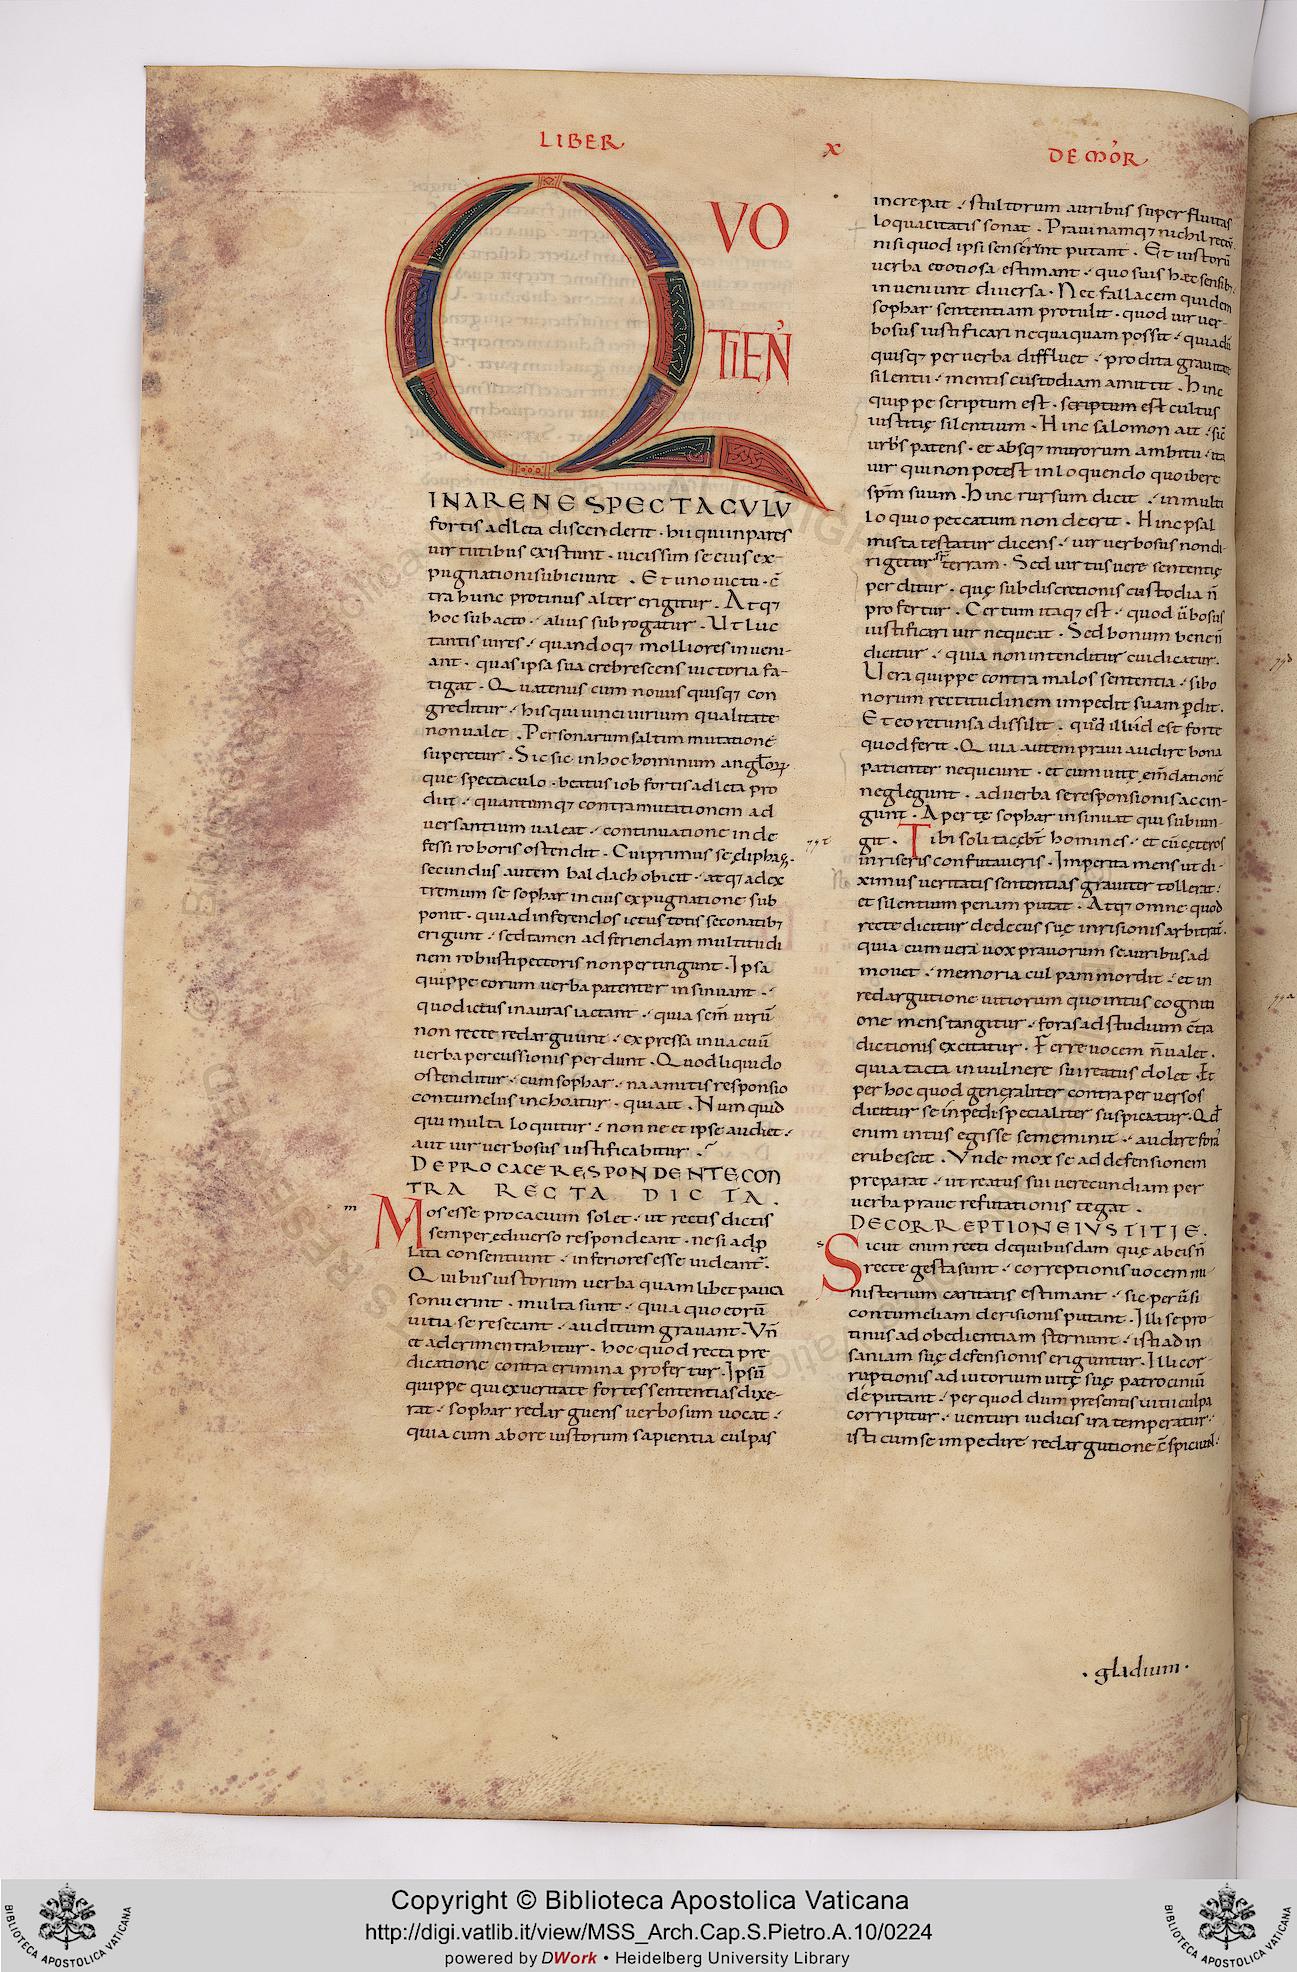 LIBER X DE MOR̓
QVO
TIEN̓
INARENE SPECTACVLV
fortis adleta discenderit · hii qui inpares
uirtutibus existunt · uicissim se eius ex-
pugnationi subiciunt . Et uno uictu · c̄
tra hunc protinus alter erigitur . Atq;
hoc subacto · alius subrogatur . Ut luc
tantis uires · quandoq; molliores inueni-
ant · quas ipsa sua crebrescens uictoria fa-
tigat . Quatenus cum nouus quisq; con
greditur · his qui uinci uirium qualitate
non ualet . Personarum saltim mutatione
superetur . Sic sic in hoc hominum angłorꝝ
que spectaculo · beatus iob fortis adleta pro
diit · quantumq; contra mutationem ad
uersantium ualeat · continuatione inde
fessi roboris ostendit . Cui primus se eliphaz .
secundus autem baldach obicit · atq; ad ex
tremum se sophar in eius expugnatione sub
ponit · qui ad inferendos ictus totis se conatib;
erigunt · sed tamen ad feriendam multitudi
nem robusti pectoris non pertingunt . Ipsa
quippe eorum uerba patenter insinuant ·
quod ictus in auras iactant · quia scm̄ uirū
non recte redarguunt · expressa in uacuū
uerba percussionis perdunt . Quod liquido
ostenditur · cum sophar · naamitis responsio
contumeliis inchoatur · qui ait . Numquid
qui multa loquitur · nonne et ipse audiet ·
aut uir uerbosus iustificabitur .
DE PROCACE RESPONDENTE CON
TRA RECTA DICTA .
m Mos esse procacium solet · ut rectis dictis
semper ediuerso respondeant · ne si ad p
lata consentiunt · inferiores esse uideant̄ .
Quibus iustorum uerba quamlibet pauca
sonuerint · multa sunt · quia quo eorū
uitia se resecant · auditum grauant . Vn̄
et ad crimen trahitur · hoc quod recta pre
dicatione contra crimina profertur . Ipsū
quippe qui ex ueritate fortes sententias dixe-
rat · sophar redarguens uerbosum uocat ·
quia cum ab ore iustorum sapientia culpas
increpat · stultorum auribus superfluitas
loquacitatis sonat . Praui namq; nichil rectū
nisi quod ipsi senserint putant . Et iustorū
uerba eo otiosa estimant · quo suis hæc sensib;
inueniunt diuersa . Nec fallacem quidem
sophar sententiam protulit · quod uir uer-
bosus iustificari nequaquam possit · quia dū
quisq; per uerba diffluet · prodita grauitate
silentii · mentis custodiam amittit . Hinc
quippe scriptum est · scriptum est cultus
iustitię silentium . Hinc salomon ait · sic̄
urbs patens · et absq; murorum ambitu · ita
uir qui non potest in loquendo quoibere
sp̄m suum . Hinc rursum dicit · in multi
loquio peccatum non deerit . Hinc psal
mista testatur dicens · uir uerbosus non di-
rigetur sr̄ terram . Sed uirtus uere sententię
perditur · quę sub discretionis custodia n̄
profertur . Certum itaq; est · quod ūbosus
iustificari uir nequeat . Sed bonum bene n̄
dicitur · quia non intenditur cui dicatur .
Uera quippe contra malos sententia · si bo
norum rectitudinem impedit suam ꝑdit .
Et eo retunsa dissilit · qd̄ illud est forte
quod ferit . Quia autem praui audire bona
patienter nequeunt · et cum uitę em̄dationē
neglegunt · ad uerba se responsionis accin-
gunt . Aperte sophar insinuat qui subiun-
git . Tibi soli tacebt̄ homines · et cū cęteros
inriseris confutaueris . Imperita mens ut di-
ximus ueritatis sententias grauiter tollerat ·
et silentium penam putat . Atq; omne quod
recte dicitur dedecus suę inrisionis arbitrat̄ .
quia cum uera uox prauorum se auribus ad
mouet · memoria culpam mordit · et in
redargutione uitiorum quo intus cogniti
one mens tangitur · foras ad studium c̄tra
dictionis excitatur . Ferre uocem n̄ ualet .
quia tacta in uulnere sui reatus dolet . Et
per hoc quod generaliter contra peruersos
dicitur se inpedi specialiter suspicatur . Qd̄
enim intus egisse se meminit · audire foras
erubescit . Vnde mox se ad defensionem
preparat · ut reatus sui uerecundiam per
uerba praue refutationis tegat .
DE CORREPTIONE IVSTITIE .
s Sicut enim recti de quibusdam quę ab eis n̄
recte gesta sunt · correptionis uocem mi
nisterium caritatis estimant · sic peruersi
contumeliam derisionis putant . Illi se pro
tinus ad obedientiam sternunt · isti ad in
saniam suę defensionis eriguntur . Illi cor
ruptionis adiutorium uitę suę patrociniū
deputant · per quod dum presentis uitii culpa
corripitur · uenturi iudicis ira temperatur ·
isti cum se impedire redargutione c̄spiciunt ·
· gladium ·
Copyright © Biblioteca Apostolica Vaticana
http://digi.vatlib.it/view/MSS_Arch.Cap.S.Pietro.A.10/0224
powered by DWork • Heidelberg University Library
BIBLIOTECA APOSTOLICA VATICANA
BIBLIOTECA APOSTOLICA VATICANA